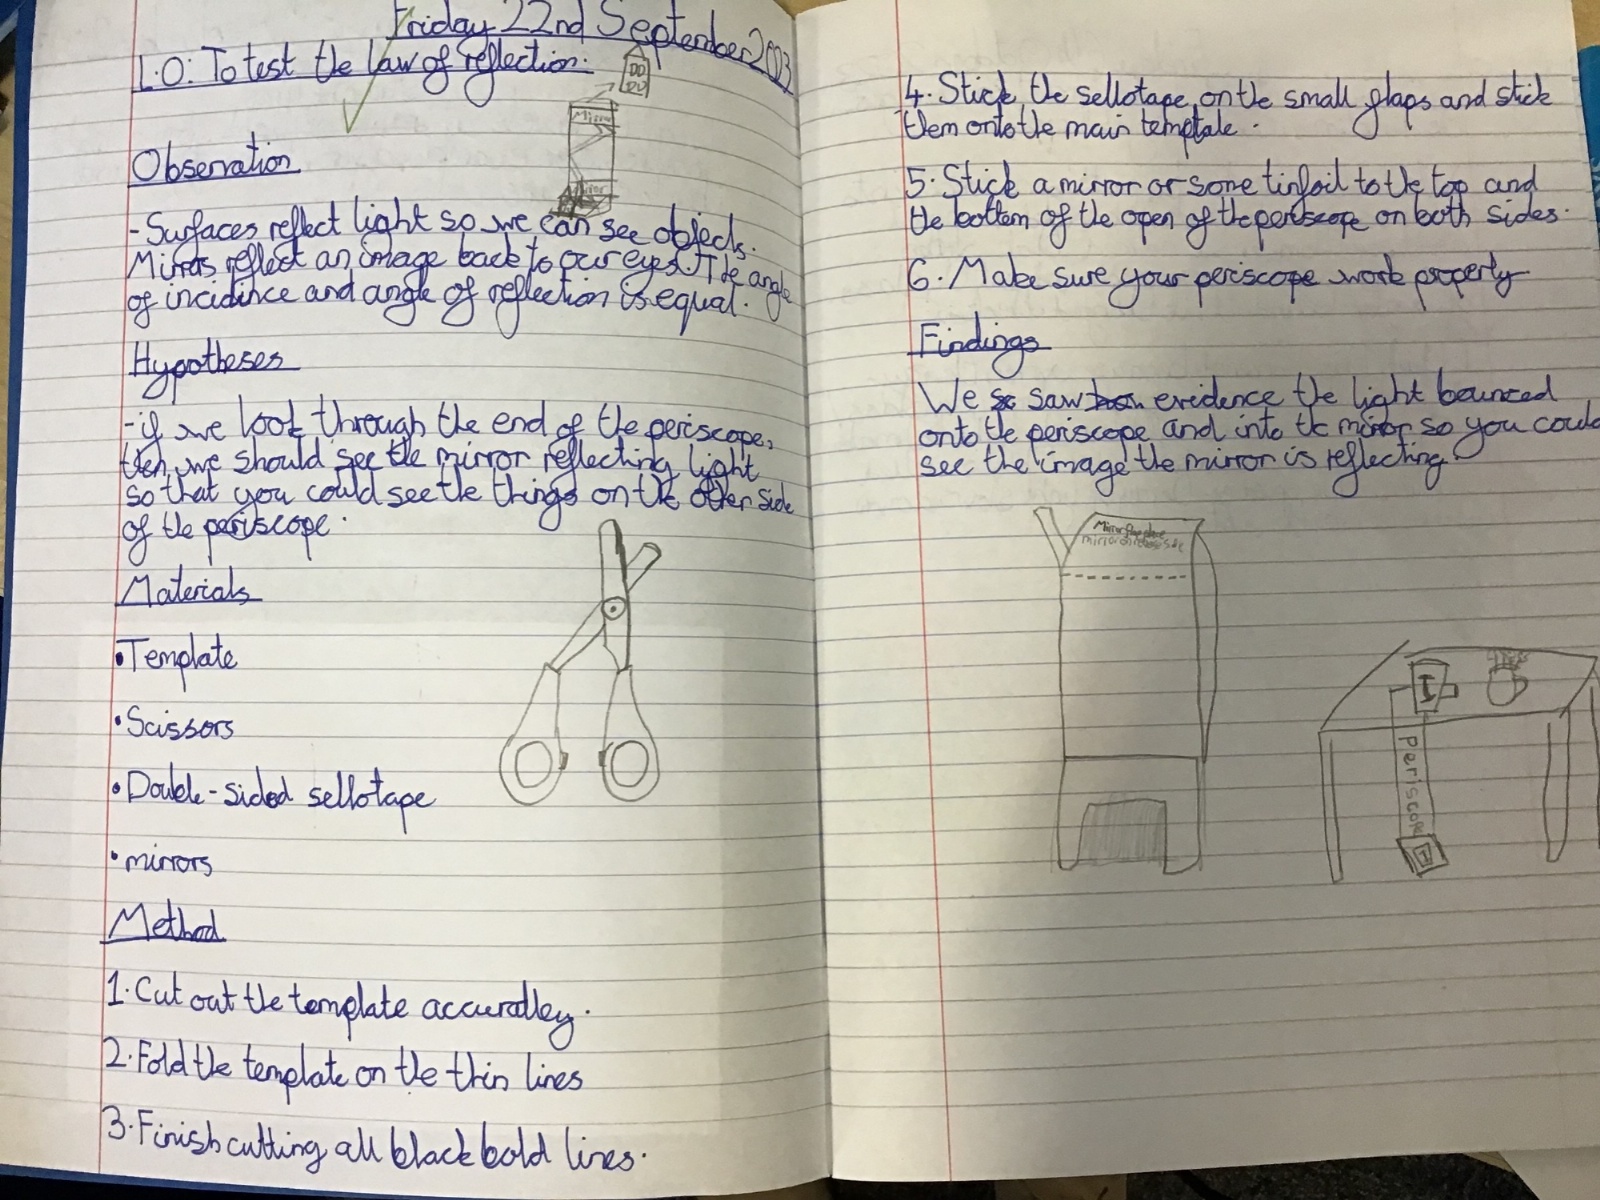 Friday 22nd September 2003
L.O: To test the law of reflection.
Mirror
Observation
- Surfaces reflect light so we can see objects.
Mirrors reflect an image back to our eyes. The angle
of incidince and angle of reflection is equal.
Hypotheses
- if we look through the end of the periscope,
then we should see the mirror reflecting light
so that you could see the things on the other side
of the periscope.
Materials
• Template
• Scissors
• Double-sided sellotape
• mirrors
Method
1. Cut out the template accuratley.
2. Fold the template on the thin lines
3. Finish cutting all black bold lines.
4. Stick the sellotape on the small flaps and stick
them onto the main template.
5. Stick a mirror or some tinfoil to the top and
the bottom of the open of the periscope on both sides.
6. Make sure your periscope work properly
Findings
We saw evidence the light bounced
onto the periscope and into the mirror so you could
see the image the mirror is reflecting
Mirror
mirror on
Periscope